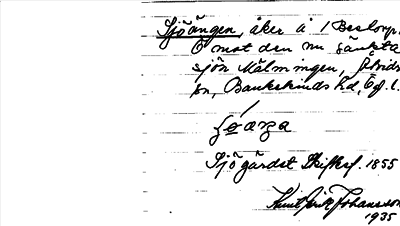 Sjöängen, åker å 1 Bestorp,
O mot den nu sänkta
sjön Mälmingen,
sn, Bankekinds hd, Ög. l.
Sjögärdet Skifksf. 1855
Knut Erik Johansson
1935